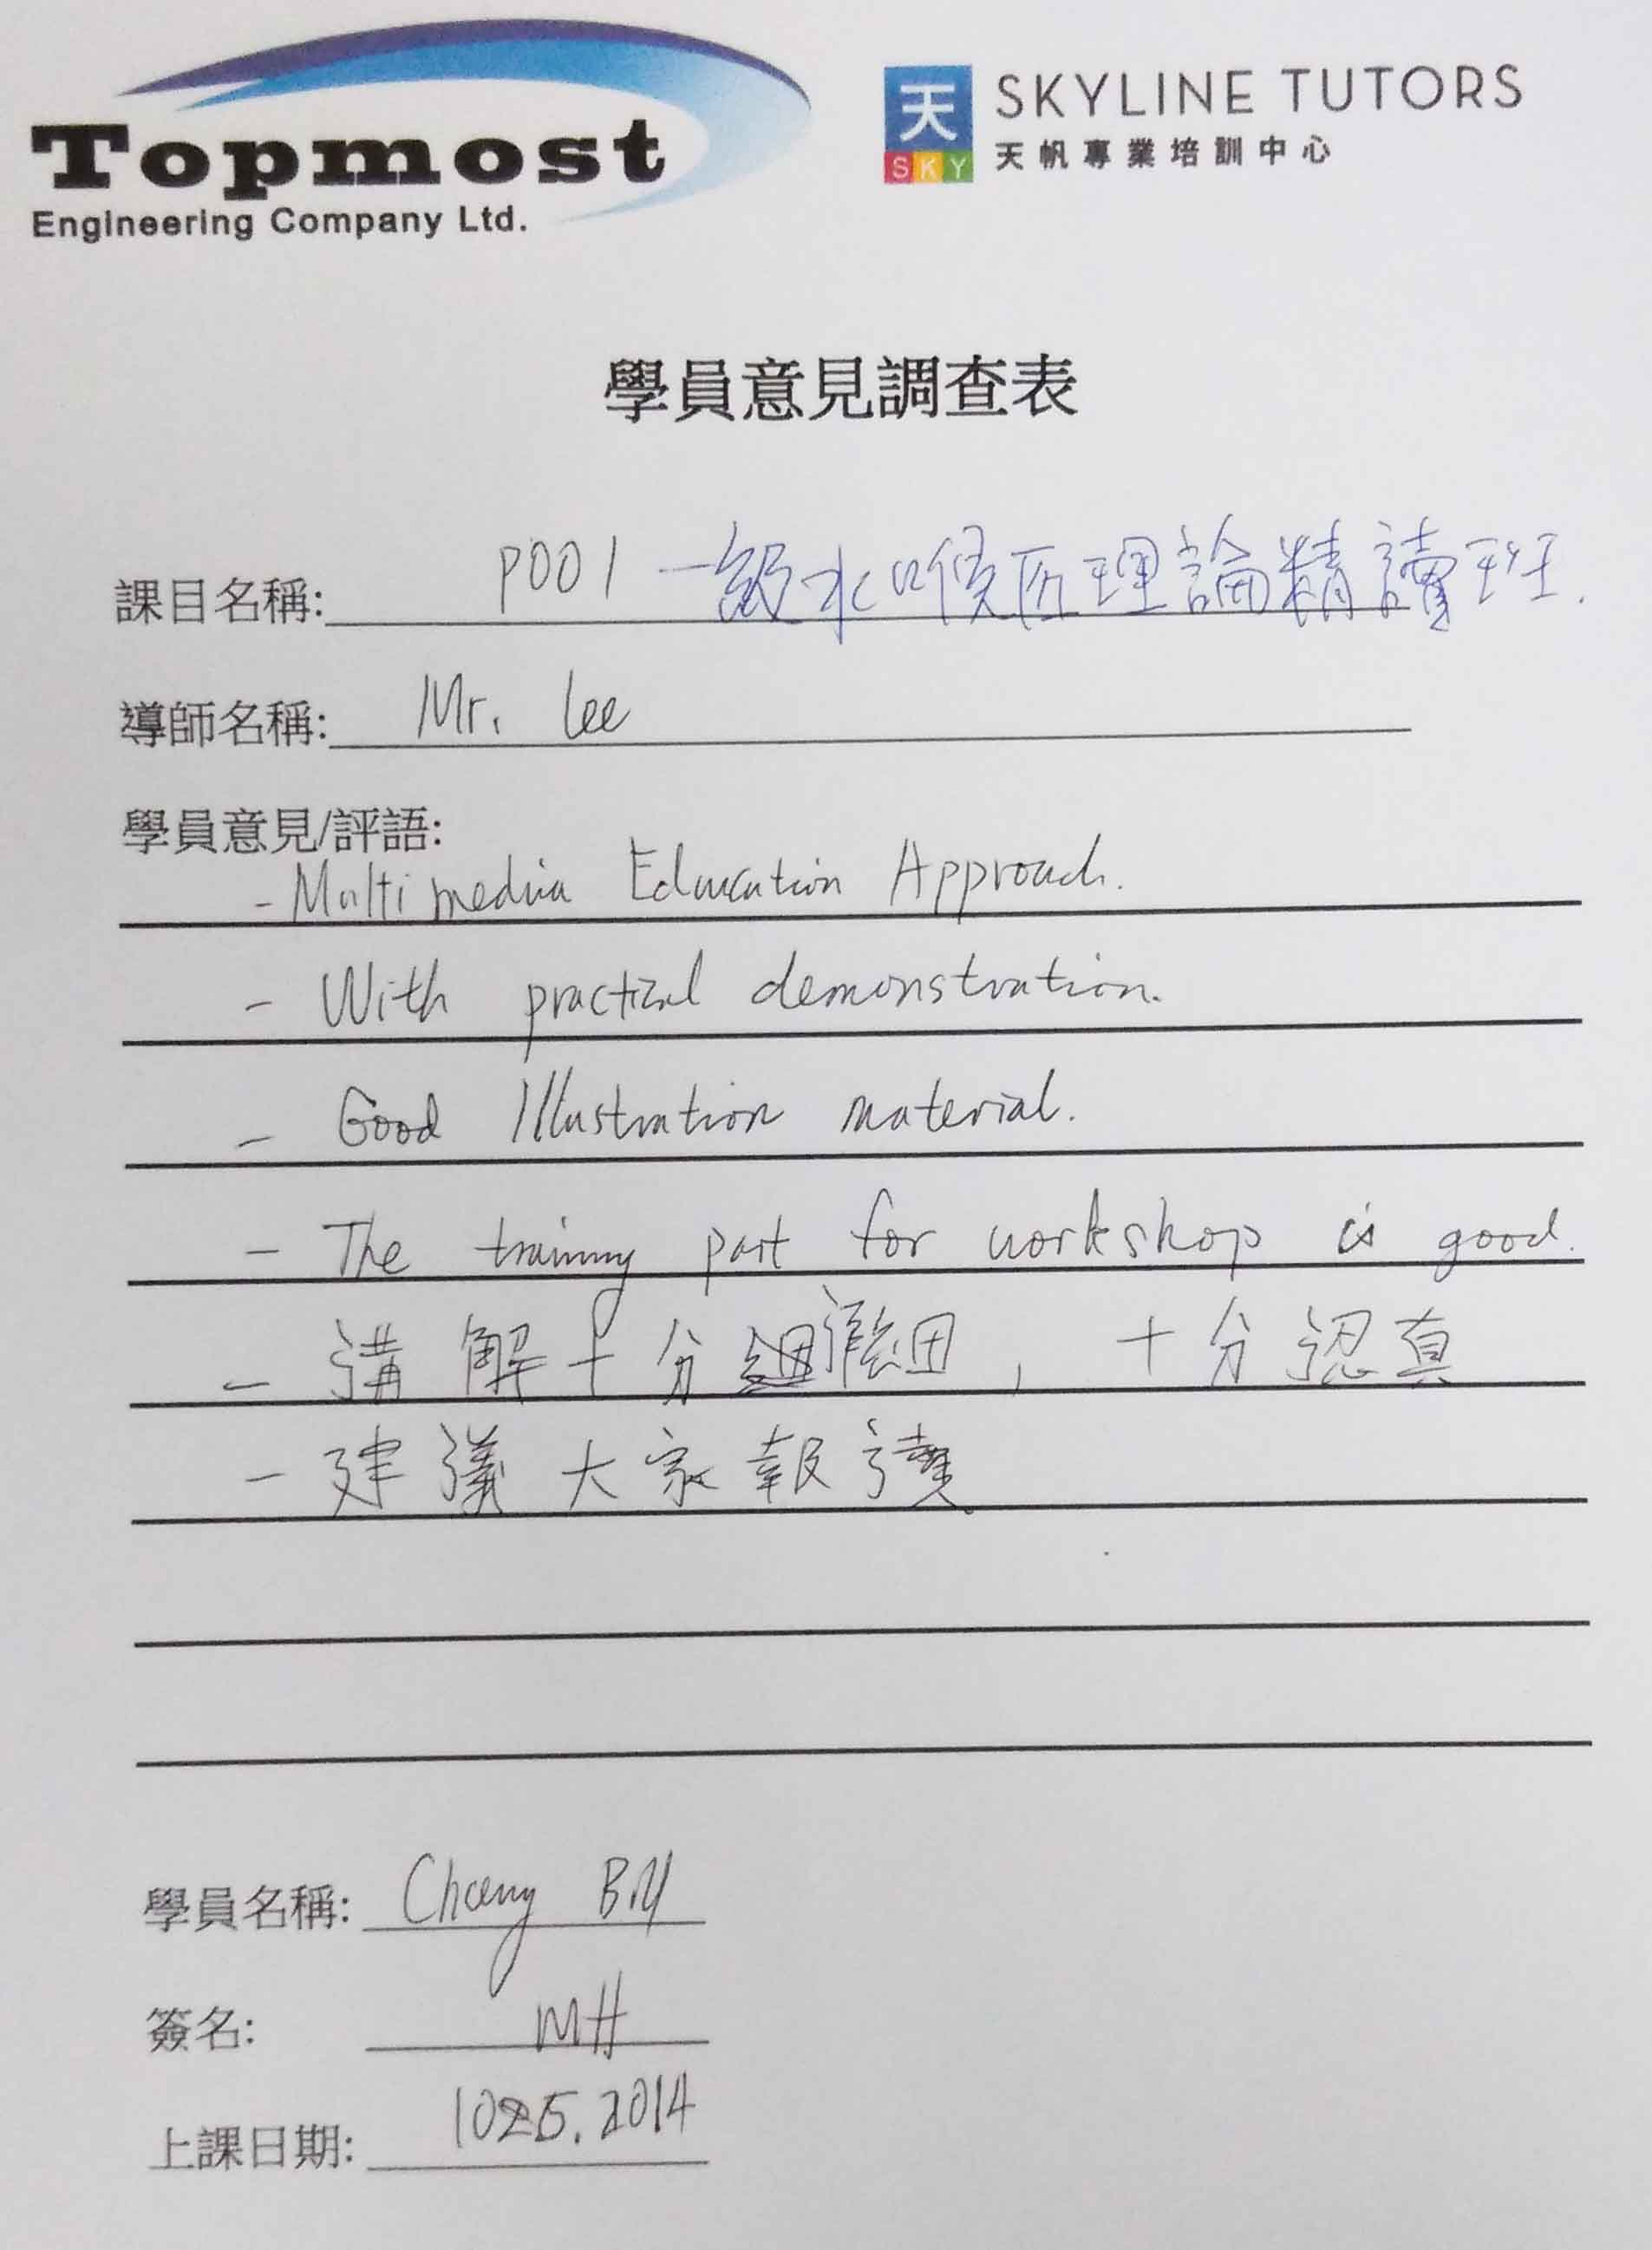 Topmost
Engineering Company Ltd.
天
SKY
SKYLINE TUTORS
天帆專業培訓中心
學員意見調查表
課目名稱: P001 一級水喉匠理論精讀班.
導師名稱: Mr. Lee
學員意見/評語:
- Multi media Education Approach.
- With practical demonstration.
- Good Illustration material.
- The training part for workshop is good.
- 講解十分詳細, 十分認真
- 建議大家報讀
學員名稱: Cheung Bill
簽名:
上課日期: 2014